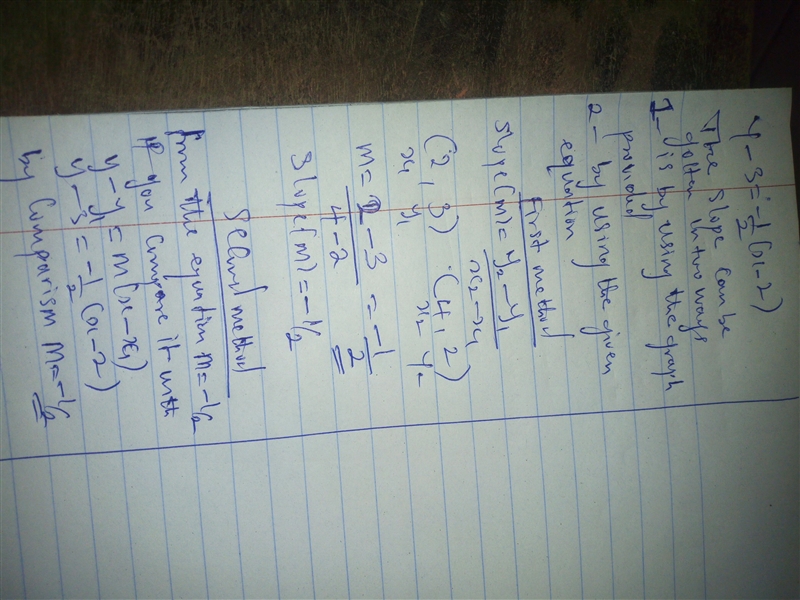 y - 3 = -1/2 (x - 2)
The slope can be
gotten in two ways
1- is by using the graph
provided
2- by using the given
equation
First method
Slope(m) = y₂ - y₁
x₂ - x₁
(2, 3) (4, 2)
x₁ y₁ x₂ y₂
m = 2 - 3 = -1
4 - 2 2
Slope(m) = -1/2
Second method
from the equation m = -1/2
If you compare it with
y - y₁ = m(x - x₁)
y - 3 = -1/2 (x - 2)
by Comparism M = -1/2